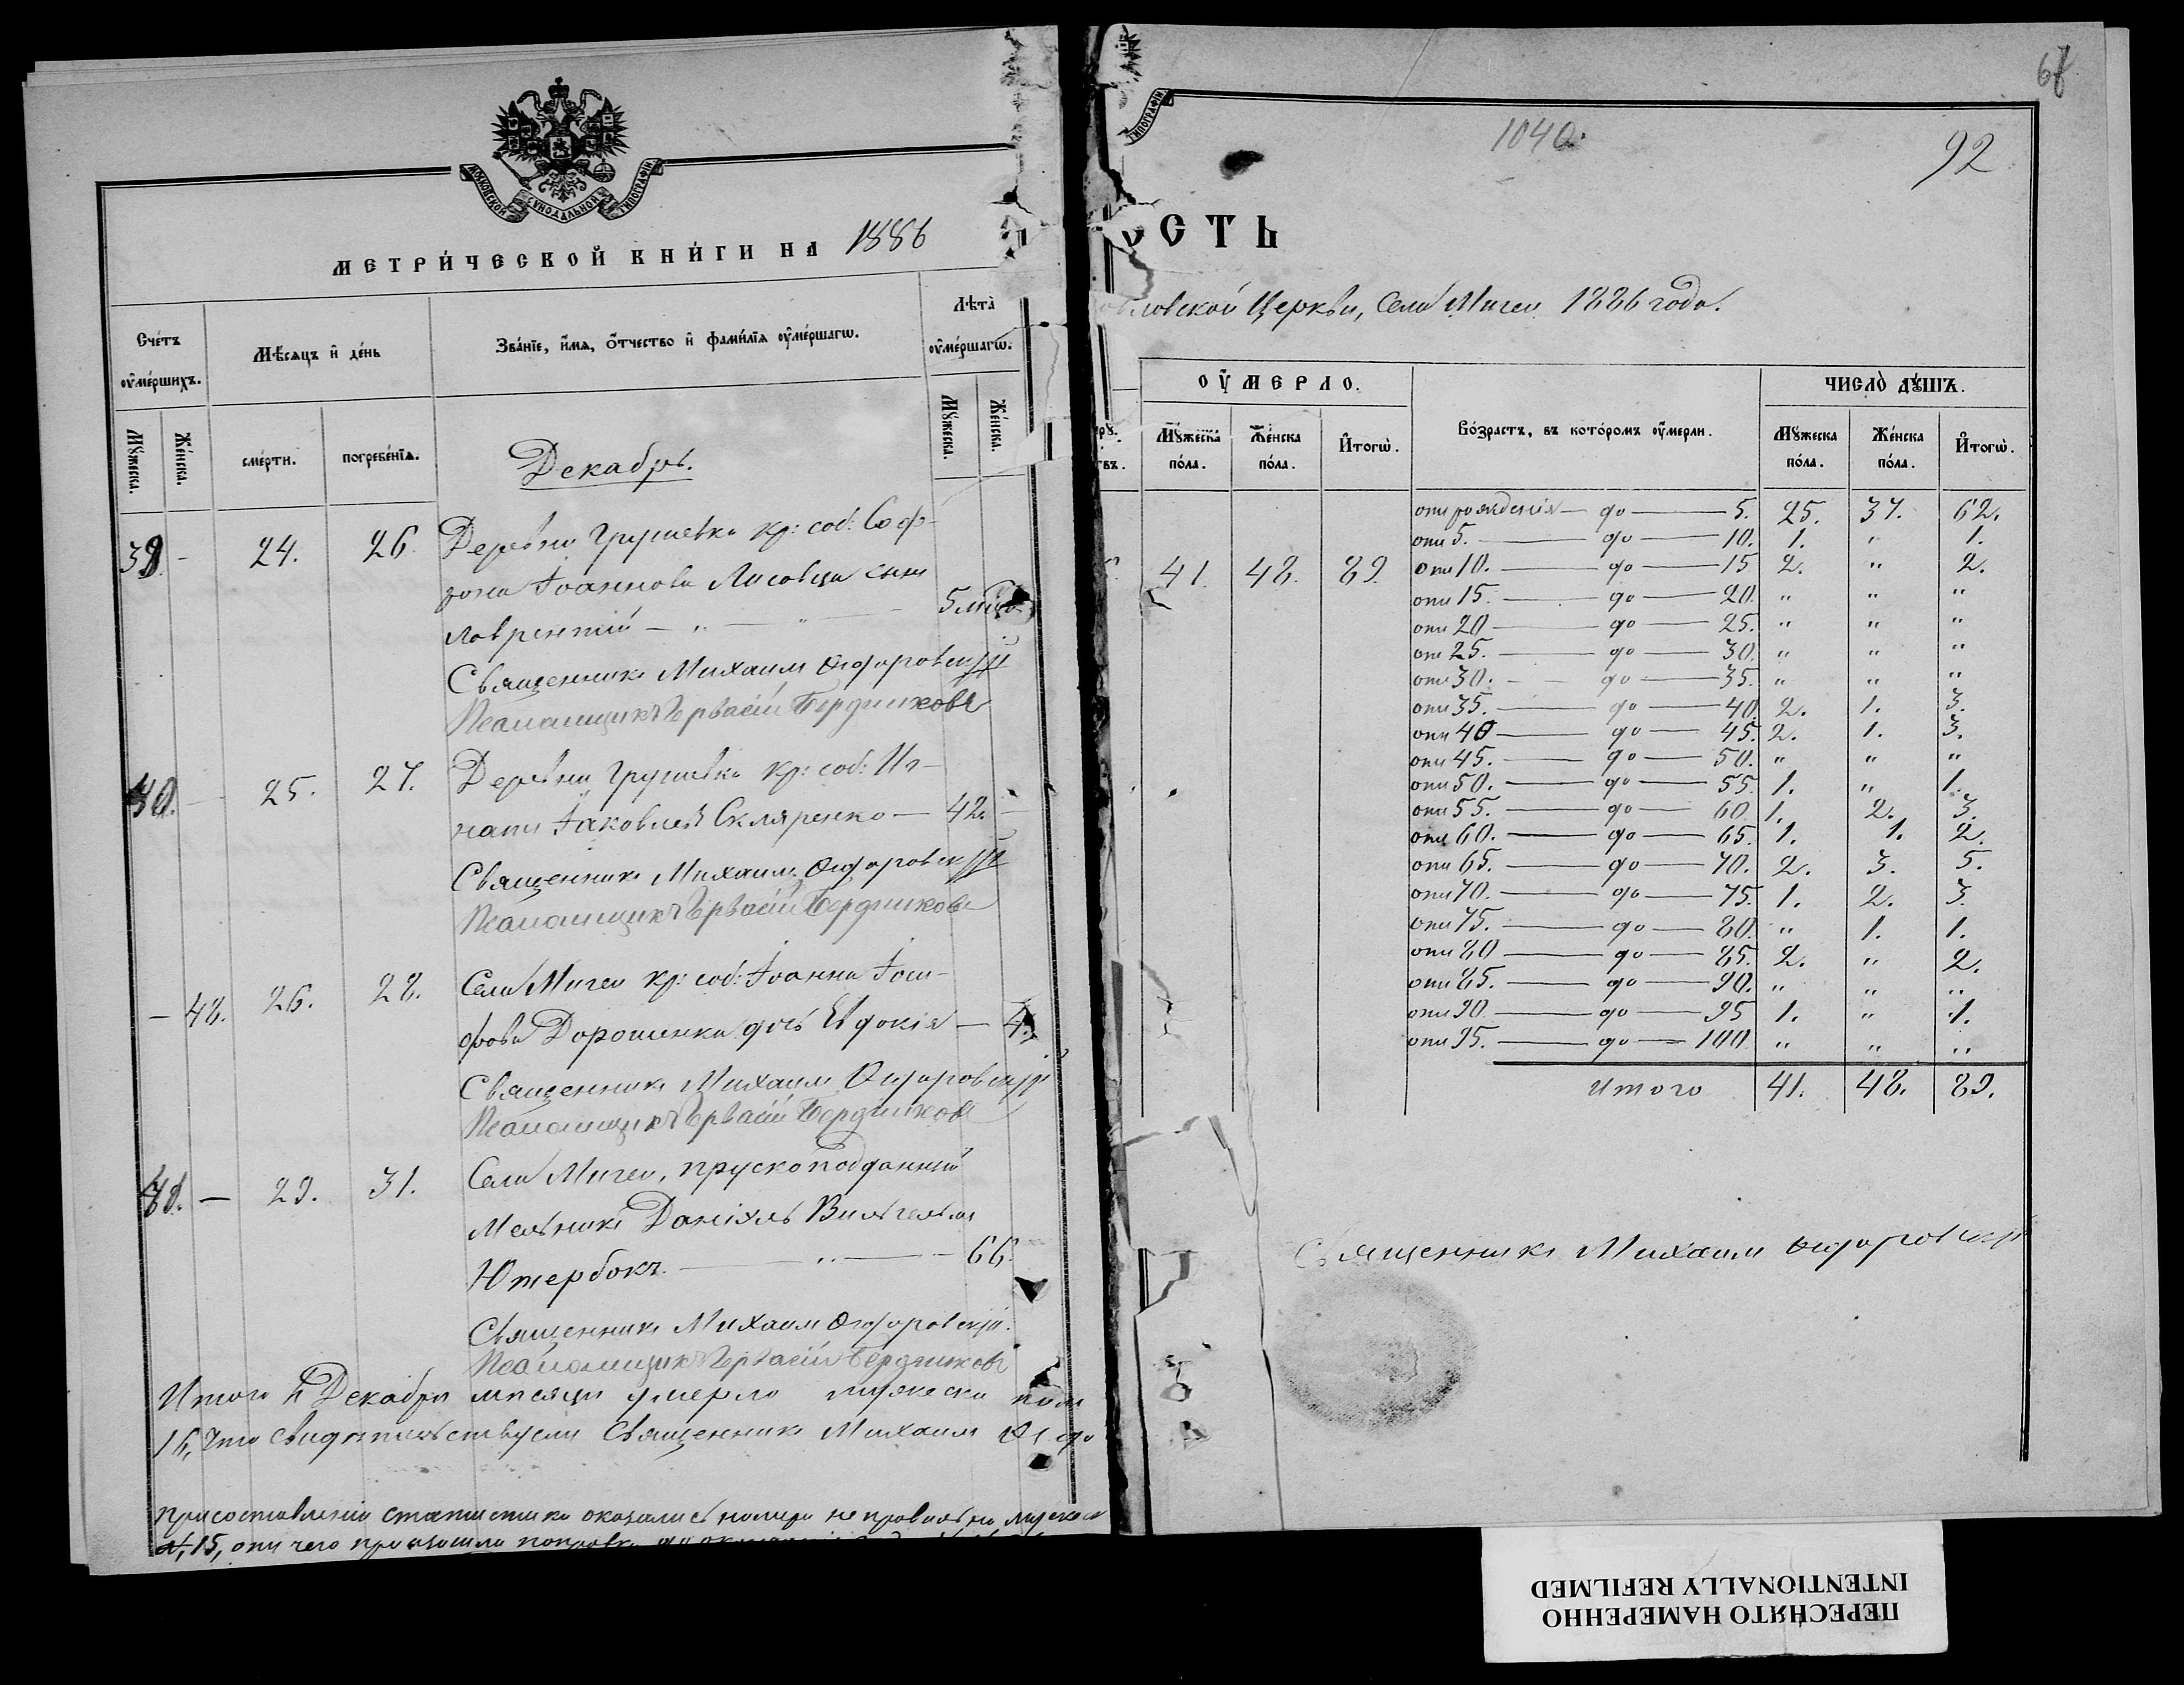 МОСКОВСКОЙ СѴНОДАЛЬНОЙ ТИПОГРАФІИ
МЕТРИ́ЧЕСКОЙ КНИ́ГИ НА 1886
Сче́тъ ᲂу҆ме́ршихъ.
Мѣ́сяцъ и҆ де́нь
Зва́нїе, и҆́мѧ, ѻ҆́тчество и҆ фами́лїѧ ᲂу҆ме́ршагѡ.
Лѣта̀ ᲂу҆ме́ршагѡ.
Мꙋ́жеска.
Же́нска.
сме́рти.
погребе́нїѧ.
Мꙋ́жеска.
Же́нска.
Декабрь.
39. - 24. 26. Деревни Грушевки кр: соб: Соф-
рона Іоаннова Лисовца сынъ
Лаврентій — „ — „ — 5 мѣс.
Священникъ Михаилъ Ѳеодоровскій
Псаломщикъ Гервасій Бердниковъ
40. - 25. 27. Деревни Грушевки кр: соб: Иг-
натій Іаковлевъ Скляренко — 42. -
Священникъ Михаилъ Ѳеодоровскій
Псаломщикъ Гервасій Бердниковъ
- 48. 26. 28. Села Мигеи кр: соб: Іоанна Іоси-
фова Дорошенка дочь Евдокія — 4.
Священникъ Михаилъ Ѳеодоровскій
Псаломщикъ Гервасій Бердниковъ
41. - 29. 31. Села Мигеи, прускоподданный
Мельникъ Даніэль Вильгельмъ
Ютербокъ. — „ — 66.
Священникъ Михаилъ Ѳеодоровскій.
Псаломщикъ Гервасій Бердниковъ
Итого въ Декабрѣ мѣсяцѣ умерло мужеска пола
16, Что свидѣтельствуемъ Священникъ Михаилъ Ѳеодо
При составленіи статистики оказались номера неправильны мужеска
15, отъ чего произошла поправка до
67
1040.
92
ТИПОГРАФІИ
ОСТЬ
овской Церкви, Села Мигеи 1886 года.
ᲂУ҆МЕРЛО.
Мꙋ́жеска по́ла.
Же́нска по́ла.
И҆того̀.
Во́зрастъ, въ кото́ромъ ᲂу҆́мерли.
ЧИСЛО̀ ДꙊШЪ.
Мꙋ́жеска по́ла.
Же́нска по́ла.
И҆того̀.
41. 48. 89.
отъ рожденія — до — 5. 25. 37. 62.
отъ 5. — до — 10. 1. „ 1.
отъ 10. — до — 15 2. „ 2.
отъ 15. — до — 20. „ „ „
отъ 20 — до — 25. „ „ „
отъ 25. — до — 30. „ „ „
отъ 30. — до — 35. „ „ „
отъ 35. — до — 40. 2. 1. 3.
отъ 40 — до — 45. 2. 1. 3.
отъ 45. — до — 50. „ „ „
отъ 50. — до — 55. 1. „ 1.
отъ 55. — до — 60. 1. 2. 3.
отъ 60. — до — 65. 1. 1. 2.
отъ 65. — до — 70. 2. 3. 5.
отъ 70. — до — 75. 1. 2. 3.
отъ 75. — до — 80. „ 1. 1.
отъ 80 — до — 85. 2. „ 2.
отъ 85. — до — 90. „ „ „
отъ 90. — до — 95 1. „ 1.
отъ 95. — до — 100. „ „ „
Итого 41. 48. 89.
Священникъ Михаилъ Ѳеодоровскій
ПЕРЕСНЯТО НАМЕРЕННО
INTENTIONALLY REFILMED